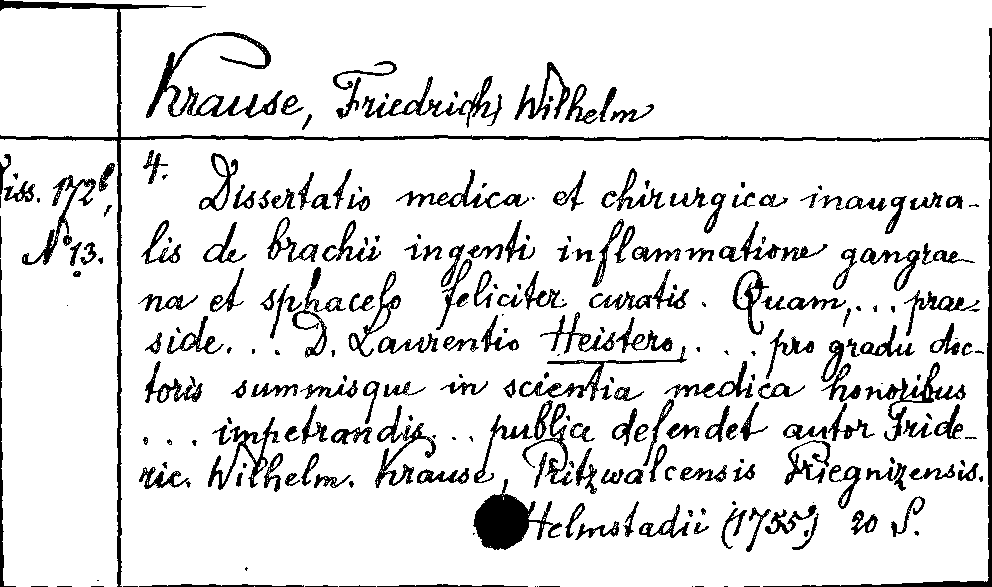 Krause, Friedrich Wilhelm
4.
Diss. 172b, Dissertatio medica et chirurgica inaugura-
No 13. lis de brachii ingenti inflammatione gangrae-
na et sphacelo feliciter curatis. Quam,... prae-
side... D. Laurentio Heistero,... pro gradu doc-
toris summisque in scientia medica honoribus
... impetrandis... publice defendet autor Fride-
ric. Wilhelm. Krause, Pritzwalcensis Priegnizensis.
Helmstadii (1755.) 20 S.